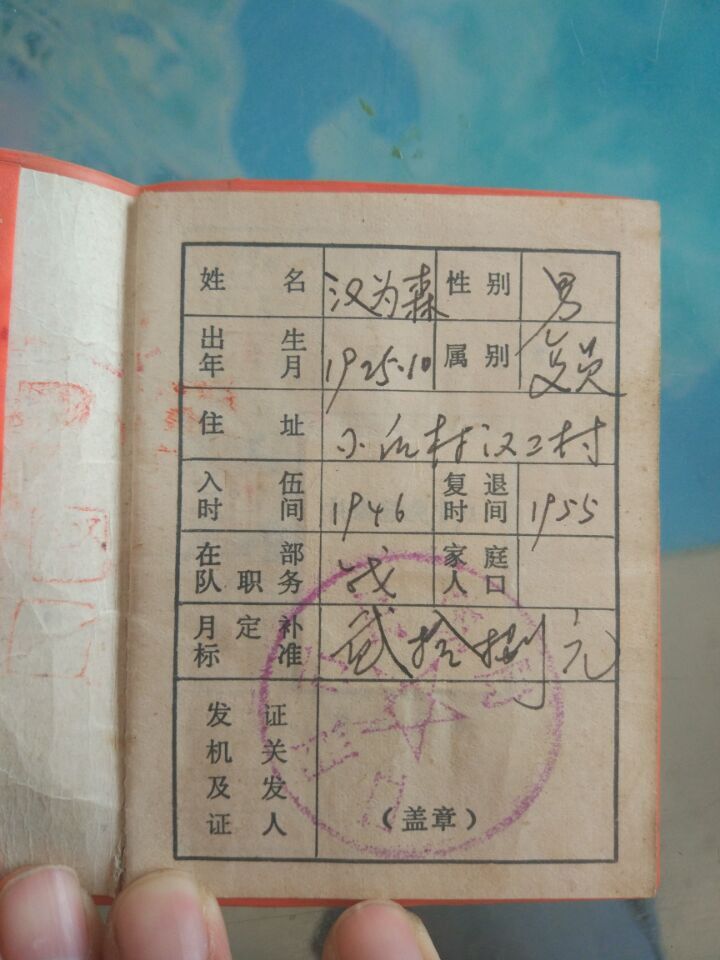 姓名 汉为森 性别 男
出生年月 1925.10 属别 复员
住址 村汉二村
入伍时间 1946 复退时间 1955
在部队职务 战 家庭人口
月定补标准 贰拾捌元
发证机关及发证人
(盖章)